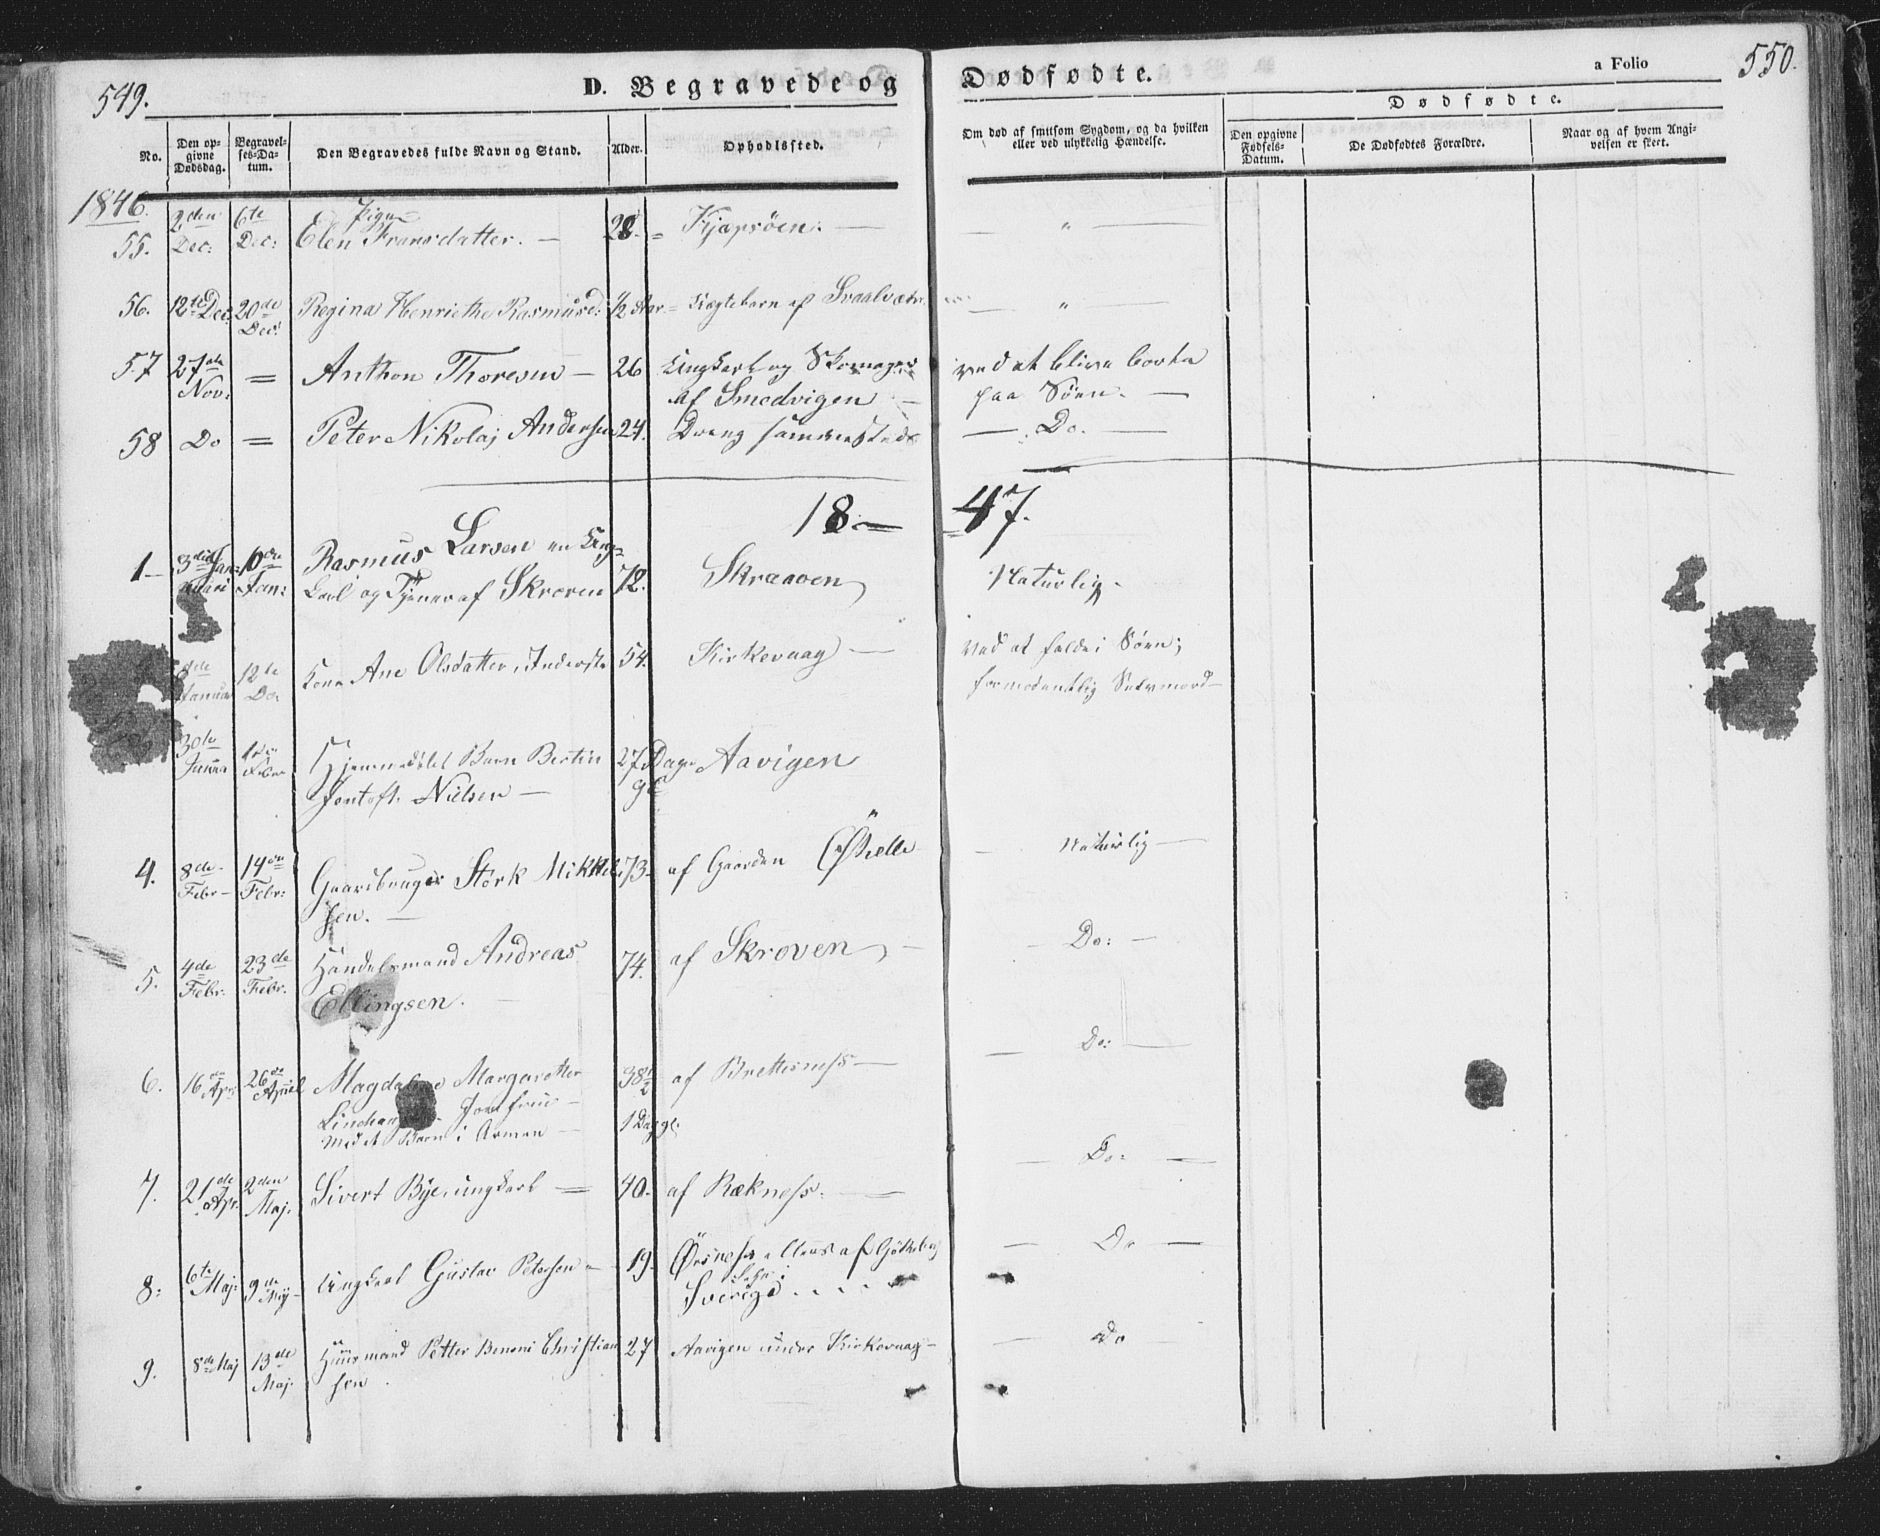 549.
D. Begravede og Dødfødte.
a Folio
550.
No.
Den opgivne Dødsdag.
Begravelses-Datum.
Den Begravedes fulde Navn og Stand.
Alder.
Ophodlsted.
Om død af smitsom Sygdom, og da hvilken eller ved ulykkelig Hændelse.
Dødfødte.
Den opgivne Fødsels-Datum.
De Dødfødtes Forældre.
Naar og af hvem Angivelsen er skeet.
1846.
55. 2den Dec: 6te Dec: Pige Elen Fransdatter. — 28. = Kjæpsøen. — "
56. 12te Dec: 20de Dec: Regina Henriethe Rasmusd: ½ Aar = Lægtebarn af Svaalvær — " —
57 27de Nov: = Anthon Thoresen — 26 Ungkarl og Skomager af Smedvigen — ved at blive borte paa Søen. —
58 Do = Peter Nikolaj Andersen 24. Dreng sammesteds — Do. —
18 — 47.
1 — 3die Januari 10de Jan: Rasmus Larsen en Ung= karl og Tjener af Skroven 72. Skraaven Naturlig.
8de Januar 12te Do. Kone Ane Olsdatter, Inderste 54. Kirkevaag — Ved at falde i Søen; formodentlig Selvmord —
30te Janua 1ste Febr Hjemmedøbt Barn Bertin Jentoft Nielsen — 27 Dage gl. Aavigen
4. 8de Febr — 14de Febr: Gaardbruger Stork Mikkel sen. — 73. af Gaarden — Naturlig —
5. 4de Febr. 23de Febr. Handelsmand Andreas Ellingsen. — 74. af Skroven — Do: —
6. 16de Apr 26de April Magdalene Margarethe Jomfrue — med et Barn i Armen — 38½ 1 Dag gl. af Brettesness — Do:
7. 21de Apr. 2den Maj. Sivert Bye ungkarl = 40. af Rækness. — Do: —
8: 6te Maj. 9de Maj — Ungkarl Gustav Petersen — 19. Ørsness af Gøtheborg Lehn i Sverige . . . . — Do —
9. 8de Maj 13de Maj. Huusmand Petter Benoni Christian sen. 27 Aavigen under Kirkevaag — — Do —